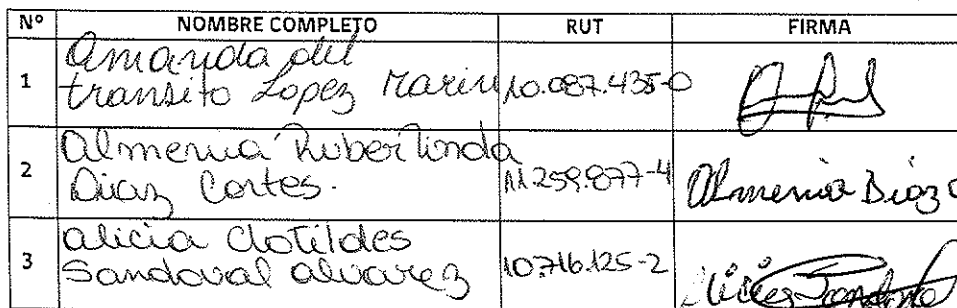 Nº NOMBRE COMPLETO RUT FIRMA
1 Amanda del
transito Lopez Marin 10.087.435-0
2 Almenia Rubertinda
Diaz Cortes. 11.259.877-4 Almenia Diaz C
3 alicia Clotildes
Sandoval alvarez 10.716.125-2